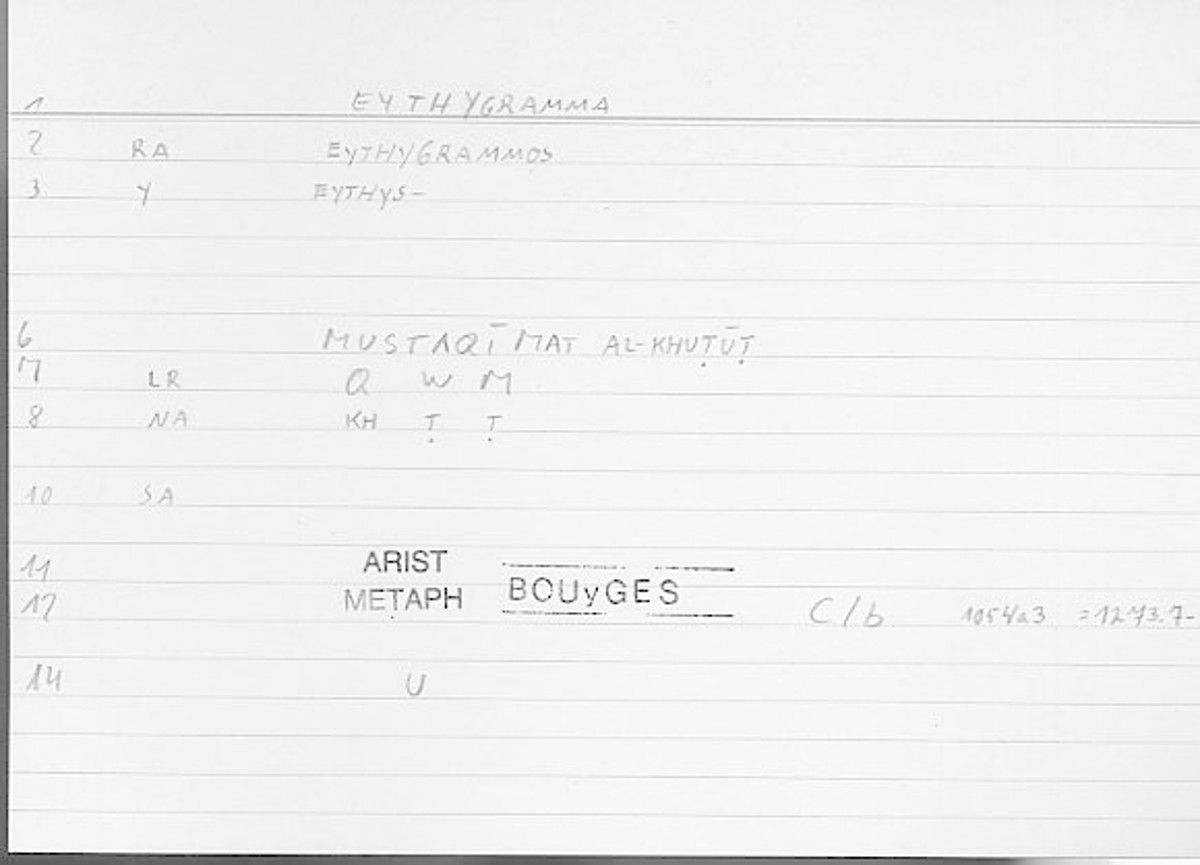 1 EYTHYGRAMMA
2 RA EYTHYGRAMMOS
3 Y EYTHYS-
6 MUSTAQĪMAT AL-KHUṬŪṬ
7 LR Q W M
8 NA KH Ṭ Ṭ
10 SA
11 ARIST
12 METAPH BOUyGES C/b 1054a3 =1273.7-
14 U